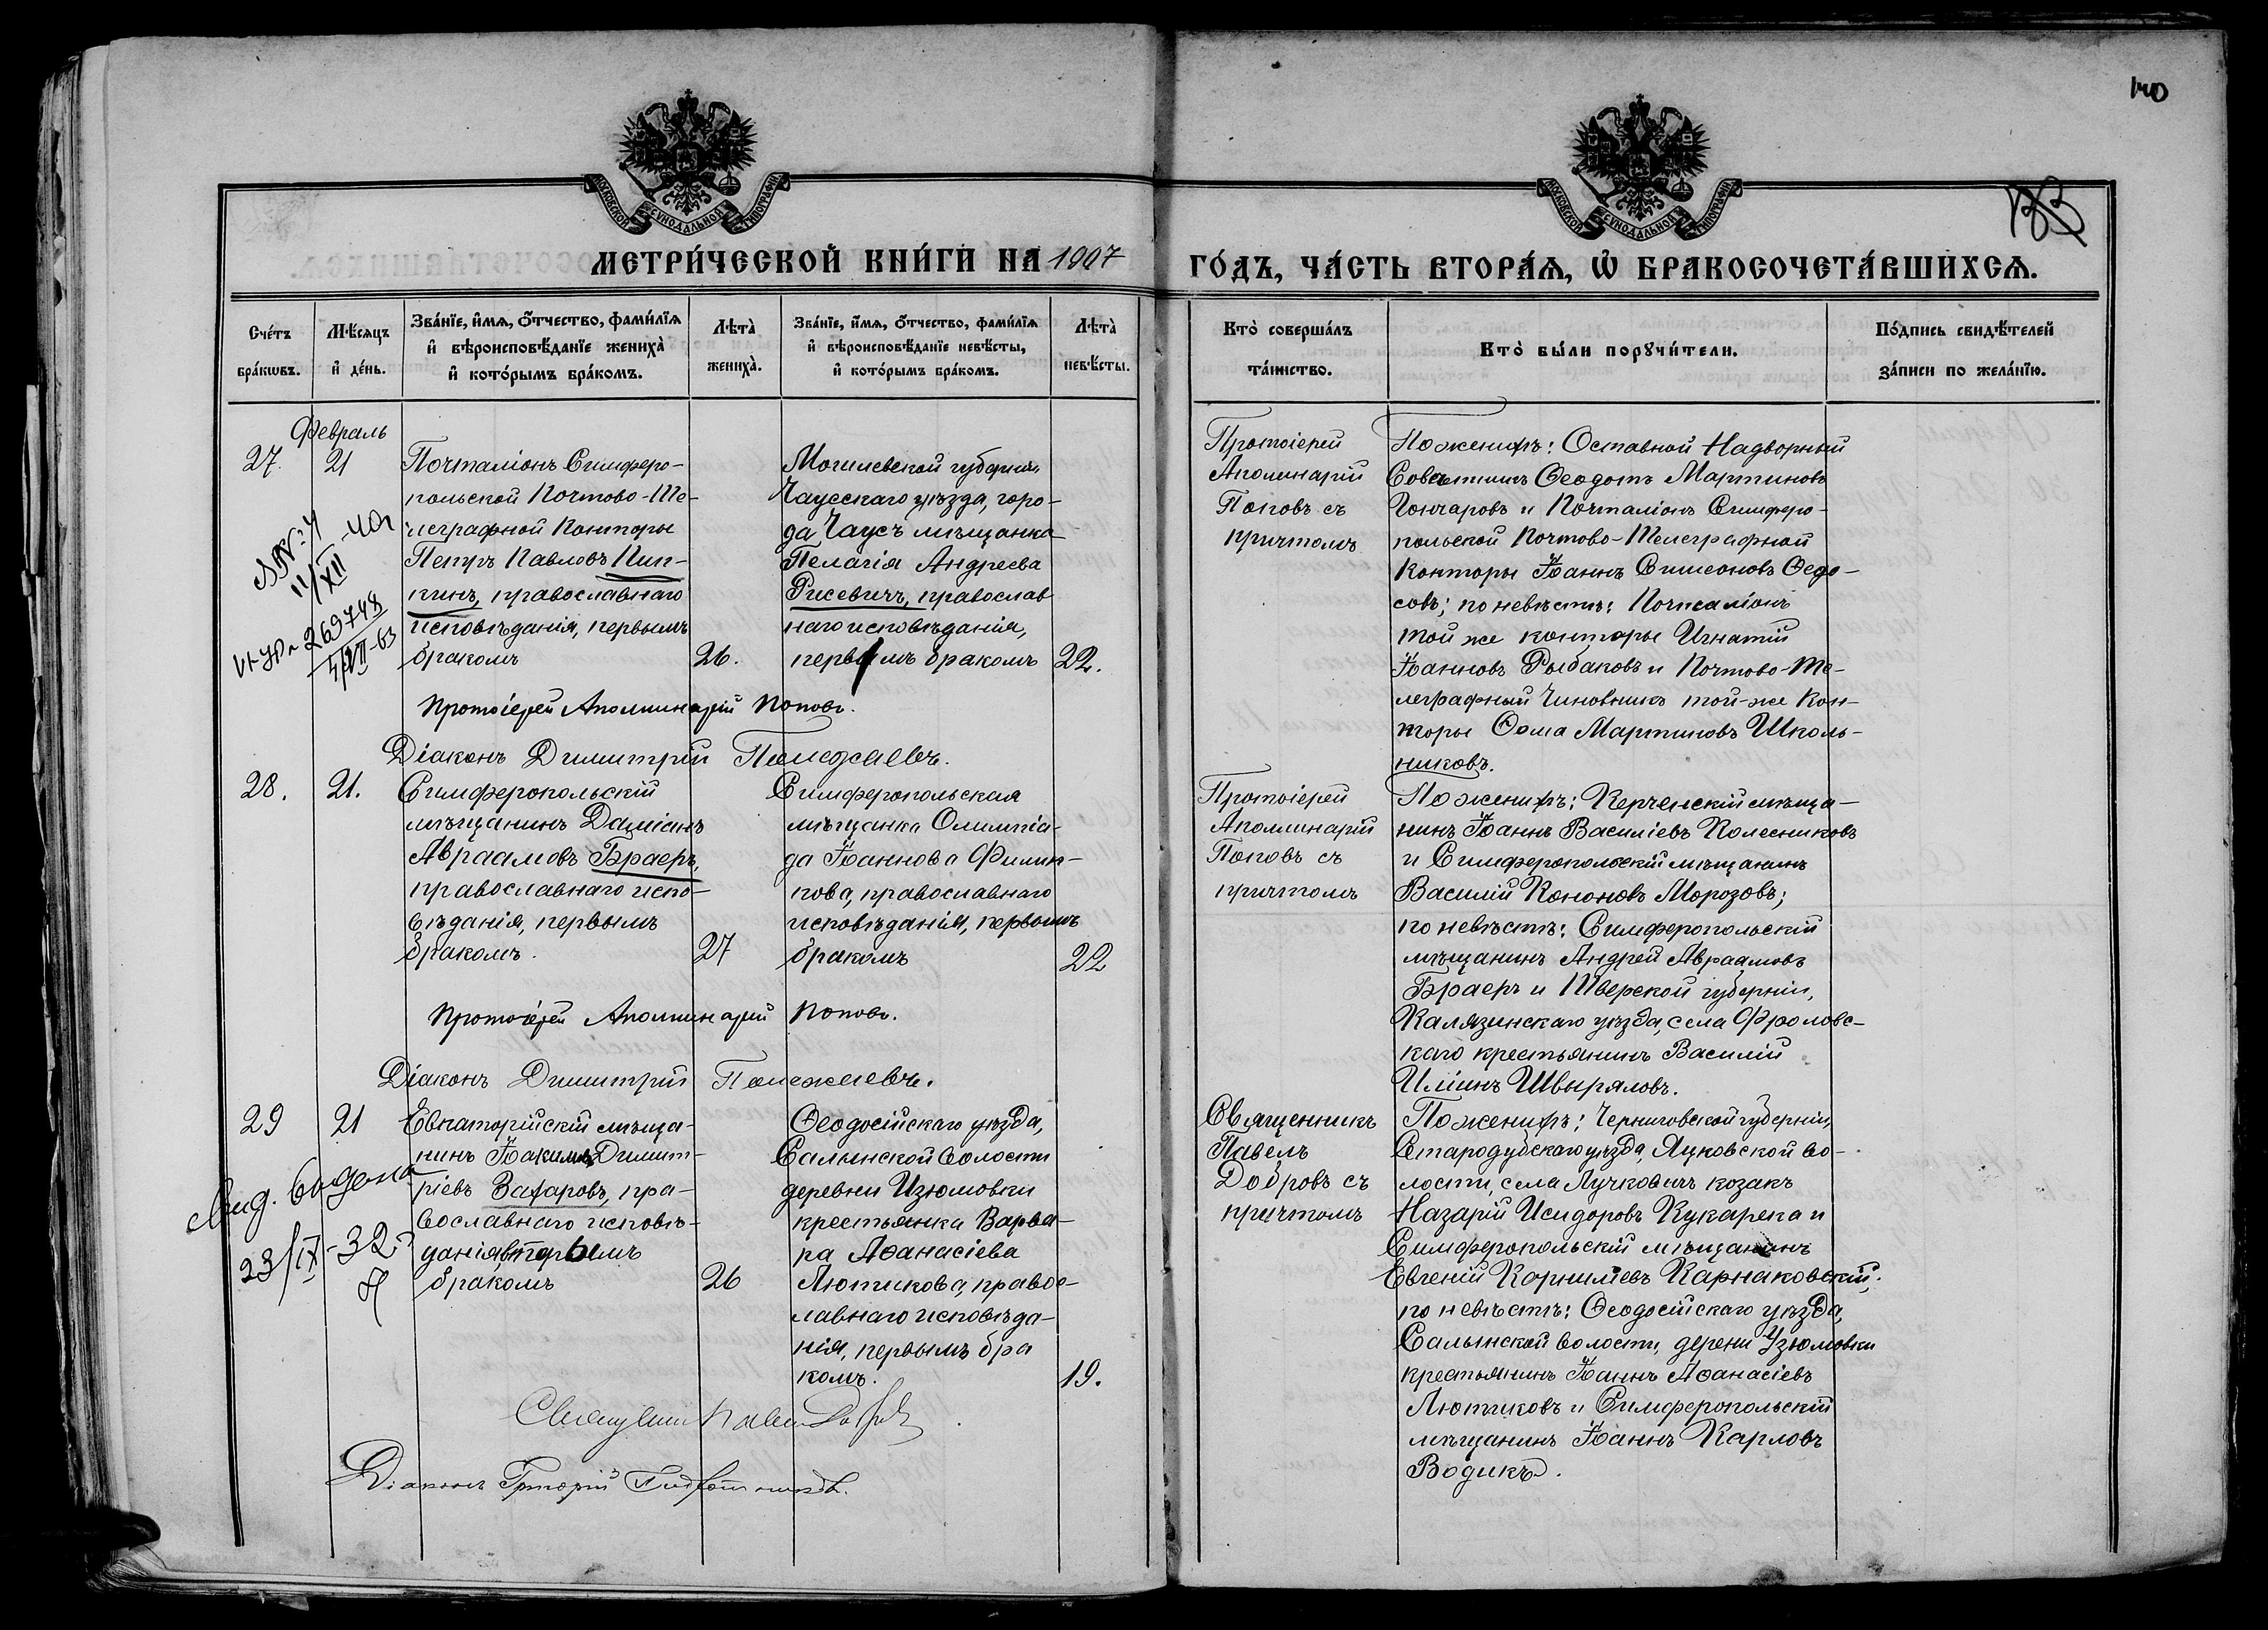 140
183
МОСКОВСКОЙ СѴНОДАЛЬНОЙ ТИПОГРАФІИ
МОСКОВСКОЙ СѴНОДАЛЬНОЙ ТИПОГРАФІИ
МЕТРИ́ЧЕСКОЙ КНИ́ГИ НА 1907 ГО́ДЪ, ЧА́СТЬ ВТОРА́Ѧ, Ѡ҆ БРАКОСОЧЕТА́ВШИХСѦ.
Сче́тъ бра́кѡвъ.
Мѣ́сѧцъ и҆ де́нь.
Зва́нїе, и҆́мѧ, ѻ҆́тчество, фами́лїѧ
и҆ вѣроисповѣ́данїе жениха̀
и҆ кото́рымъ бра́комъ.
Лѣта̀ жениха̀.
Зва́нїе, и҆́мѧ, ѻ҆́тчество, фами́лїѧ
и҆ вѣроисповѣ́данїе невѣ́сты,
и҆ кото́рымъ бра́комъ.
Лѣта̀ невѣ́сты.
Кто̀ соверша́лъ та́инство.
Кто̀ бы́ли порꙋчи́тели.
По́дпись свидѣ́телей за́писи по жела́нїю.
Февраль
27. 21
Почталіонъ Симферо-
польской Почтово-Те-
леграфной Конторы
Петръ Павловъ Пип-
кинъ, православнаго
исповѣданія, первымъ
бракомъ
26.
Могилевской губерніи
Чаусскаго уѣзда, горо-
да Чаусъ мѣщанка
Пелагія Андреева
Рисевичъ, православ
наго исповѣданія,
первымъ бракомъ
22.
Протоіерей
Аполинарій
Поповъ съ
причтомъ
По женихѣ: Оставной Надворный
Совѣтникъ Ѳеодотъ Мартиновъ
Гончаровъ и Почталіонъ Симферо-
польской Почтово-Телеграфной
Конторы Іоаннъ Симеоновъ Ѳедо-
совъ; по невѣстѣ: Почталіонъ
той же конторы Игнатій
Іоанновъ Рыбаковъ и Почтово-Те-
леграфный Чиновникъ той-же Кон-
торы Ѳома Мартиновъ Школь-
никовъ.
11/XII-40г
269748
Протоіерей Аполлинарій Поповъ.
Діаконъ Димитрій
28. 21.
Симферопольскій
мѣщанинъ Даміанъ
Авраамовъ Браеръ,
православнаго испо-
вѣданія, первымъ
бракомъ.
27
Симферопольская
мѣщанка Олимпіа-
да Іоаннова Филип-
пова, православнаго
исповѣданія, первымъ
бракомъ
22
Протоіерей
Аполлинарій
Поповъ съ
причтомъ
По женихѣ: Керченскій мѣща-
нинъ Іоаннъ Василіевъ Колесниковъ
и Симферопольскій мѣщанинъ
Василій Кононовъ Морозовъ;
по невѣстѣ: Симферопольскій
мѣщанинъ Андрей Авраамовъ
Браеръ и Тверской губерніи,
Калязинскаго уѣзда, села Фроловс-
каго крестьянинъ Василій
Иліинъ Швыряловъ.
Протоіерей Аполлинарій Поповъ.
Діаконъ Димитрій
29 21
Евпаторійскій мѣща-
нинъ Іоакимъ Димит-
ріевъ Захаровъ, пра-
вославнаго исповѣ-
данія, вторымъ
бракомъ
26
Ѳеодосійскаго уѣзда,
Салынской волости
деревни Изюмовки
крестьянка Варва-
ра Аѳанасіева
Лютикова, правос-
лавнаго исповѣда-
нія, первымъ бра
комъ.
19.
Священникъ
Павелъ
Добровъ съ
причтомъ
По женихѣ: Черниговской губерніи,
Стародубскаго уѣзда, Яцковской во-
лости, села Лучковичъ козакъ
Назарій Исидоровъ Кукарека и
Симферопольскій мѣщанинъ
Евгеній Корниліевъ Карнаковскій;
по невѣстѣ: Ѳеодосійскаго уѣзда,
Салынской волости, дерени Узюмовки
крестьянинъ Іоаннъ Аѳанасіевъ
Лютиковъ и Симферопольскій
мѣщанинъ Іоаннъ Карловъ
Водикъ.
23/IX-32
Діаконъ Григорій